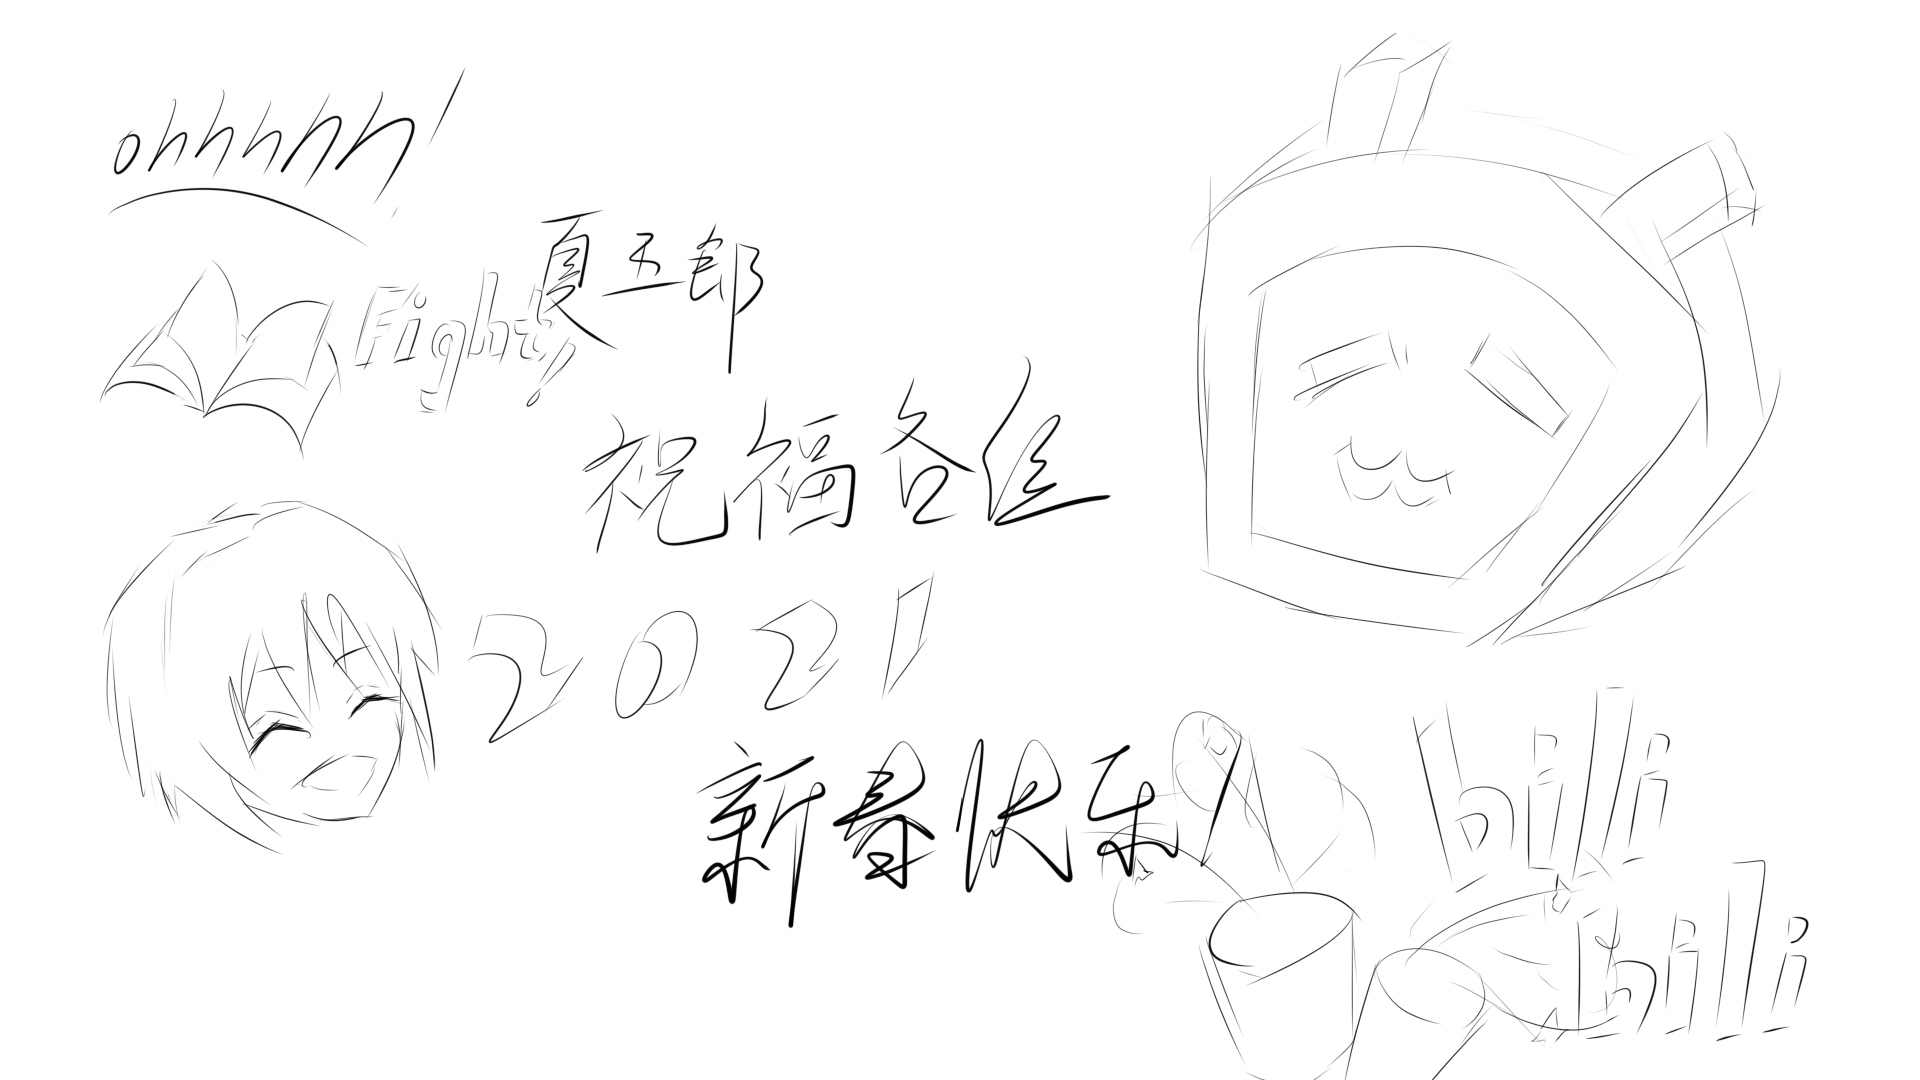 ohhhhh!
夏玉郎
Fight!
祝福各位
2021
新春快乐!
bili
bili